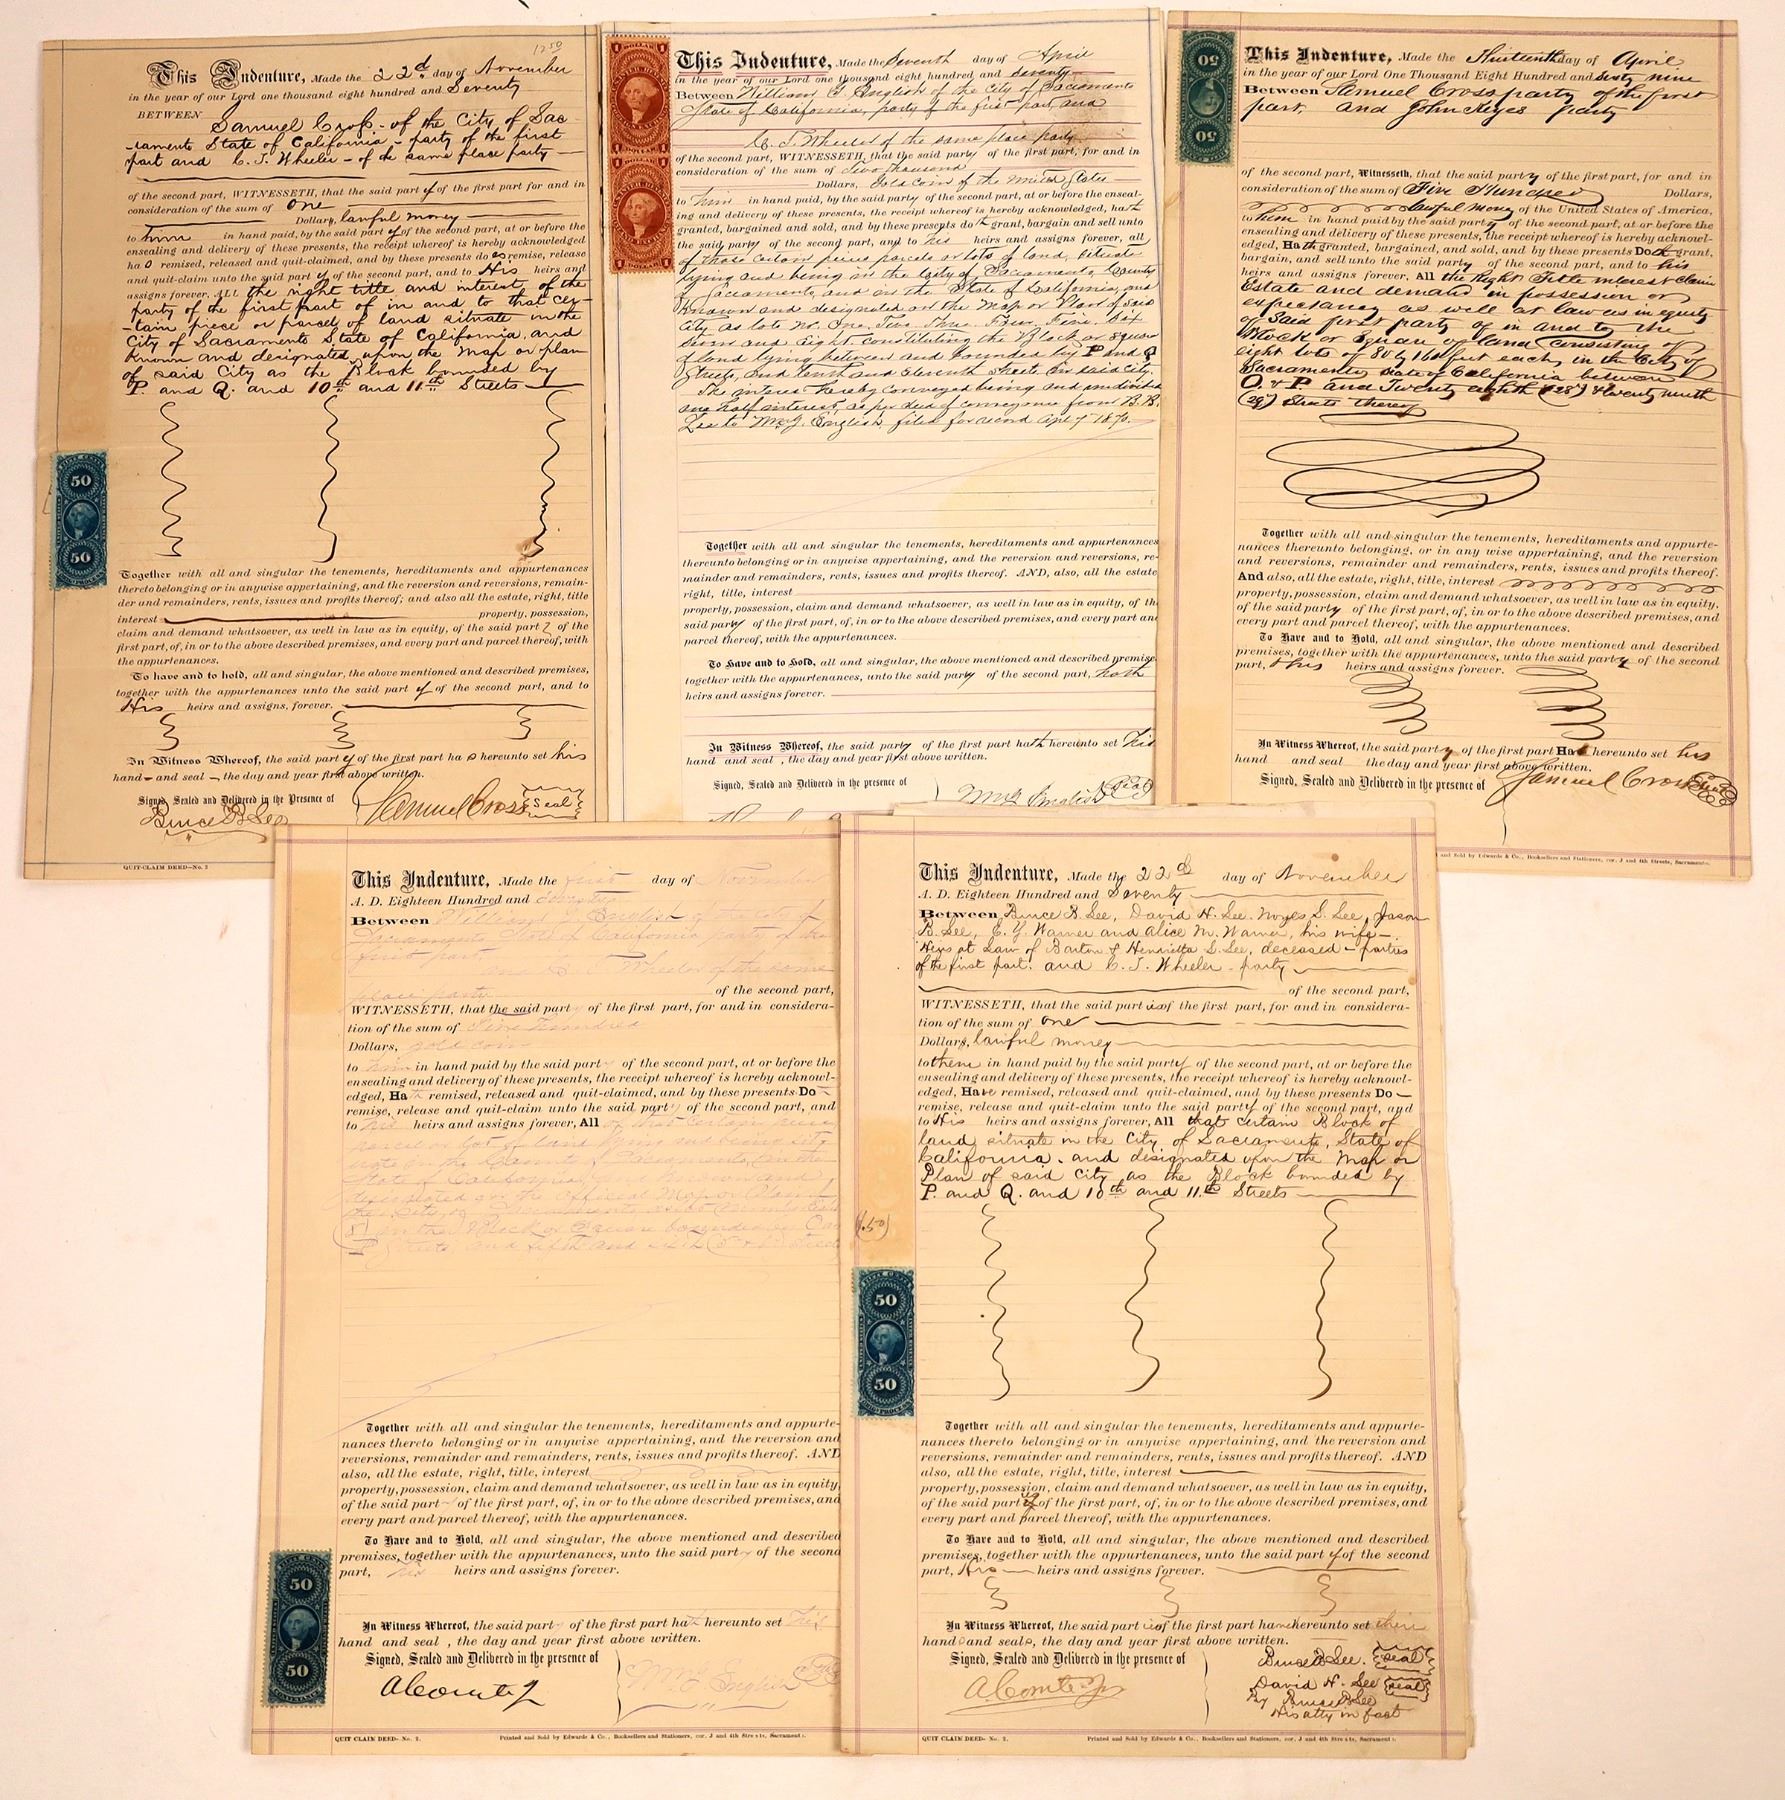 12 50
This Indenture, Made the 22d day of November
in the year of our Lord one thousand eight hundred and Seventy
BETWEEN Samuel Cross - of the City of Sac-
-ramento State of California - party of the first
part and C. T. Wheeler - of the same place party
of the second part, WITNESSETH, that the said party of the first part for and in
consideration of the sum of one
Dollars, lawful money
to him in hand paid, by the said party of the second part, at or before the
ensealing and delivery of these presents, the receipt whereof is hereby acknowledged
has remised, released and quit-claimed, and by these presents does remise, release
and quit-claim unto the said party of the second part, and to His heirs and
assigns forever, ALL the right title and interest of the
party of the first part of in and to that cer-
-tain piece or parcel of land situate in the
City of Sacramento State of California, and
known and designated upon the map or plan
of said City as the Block bounded by
P. and Q. and 10th and 11th Streets
50
50
Together with all and singular the tenements, hereditaments and appurtenances
thereto belonging or in anywise appertaining, and the reversion and reversions, remain-
der and remainders, rents, issues and profits thereof; and also all the estate, right, title
interest property, possession,
claim and demand whatsoever, as well in law as in equity, of the said party of the
first part, of, in or to the above described premises, and every part and parcel thereof, with
the appurtenances.
To have and to hold, all and singular, the above mentioned and described premises,
together with the appurtenances unto the said party of the second part, and to
His heirs and assigns, forever.
In Witness Whereof, the said party of the first part has hereunto set his
hand and seal the day and year first above written.
Signed, Sealed and Delivered in the Presence of
Bruce B Lee
Samuel Cross Seal
QUIT-CLAIM DEED—No. 2
This Indenture, Made the Seventh day of April
in the year of our Lord one thousand eight hundred and seventy
Between William J. English of the City of Sacramento
State of California, party of the first part, and
C. T. Wheeler of the same place party
of the second part, WITNESSETH, that the said party of the first part, for and in
consideration of the sum of Two Thousand
Dollars, Gold Coin of the United States
to him in hand paid, by the said party of the second part, at or before the enseal-
ing and delivery of these presents, the receipt whereof is hereby acknowledged, hath
granted, bargained and sold, and by these presents doth grant, bargain and sell unto
the said party of the second part, and to his heirs and assigns forever, all
of those certain pieces parcels or lots of land, situate
lying and being in the City of Sacramento, County
of Sacramento, and in the State of California, and
known and designated on the Map or Plan of said
City as lots No. One, Two, Three, Four, Five, Six
Seven and Eight constituting the Block or Square
of land lying between and bounded by P and Q
Streets, and tenth and eleventh Streets in said City.
The interest hereby conveyed being and undivided
one half interest, as per deed of conveyance from B. B.
Lee to Wm J. English, filed for record April 7 1870.
Together with all and singular the tenements, hereditaments and appurtenances
thereunto belonging or in anywise appertaining, and the reversion and reversions, re-
mainder and remainders, rents, issues and profits thereof. AND, also, all the estate
right, title, interest
property, possession, claim and demand whatsoever, as well in law as in equity, of the
said party of the first part, of, in or to the above described premises, and every part and
parcel thereof, with the appurtenances.
To Have and to Hold, all and singular, the above mentioned and described premises
together with the appurtenances, unto the said party of the second part,
heirs and assigns forever.
In Witness Whereof, the said party of the first part hath hereunto set his
hand and seal, the day and year first above written.
Signed, Sealed and Delivered in the presence of
Wm J English Seal
50
50
This Indenture, Made the Thirteenth day of April
in the year of our Lord One Thousand Eight Hundred and sixty nine
Between Samuel Cross party of the first
part, and John Keyes party
of the second part, Witnesseth, that the said party of the first part, for and in
consideration of the sum of Five Hundred Dollars,
lawful money of the United States of America,
to him in hand paid by the said party of the second part, at or before the
ensealing and delivery of these presents, the receipt whereof is hereby acknowl-
edged, Hath granted, bargained, and sold, and by these presents Doth grant,
bargain, and sell unto the said party of the second part, and to his
heirs and assigns forever. All the Right Title interest Claim
Estate and demand in possession or
expectancy as well at law as in equity
of said first party of in and to the
Block or Square of land consisting of
eight lots of 80 by 160 feet each, in the City of
Sacramento State of California between
O & P. and Twenty eighth (28th) & twenty ninth
(29th) Streets thereof
Together with all and singular the tenements, hereditaments and appurte-
nances thereunto belonging, or in any wise appertaining, and the reversion
and reversions, remainder and remainders, rents, issues and profits thereof.
And also, all the estate, right, title, interest
property, possession, claim and demand whatsoever, as well in law as in equity,
of the said party of the first part, of, in or to the above described premises, and
every part and parcel thereof, with the appurtenances.
To Have and to Hold, all and singular, the above mentioned and described
premises, together with the appurtenances, unto the said party of the second
part, his heirs and assigns forever.
In Witness Whereof, the said party of the first part Hath hereunto set his
hand and seal the day and year first above written.
Signed, Sealed and Delivered in the presence of
Samuel Cross Seal
and Sold by Edwards & Co., Booksellers and Stationers, cor. J and 4th Streets, Sacramento.
This Indenture, Made the first day of
A. D. Eighteen Hundred and
Between William J. English of the City of
Sacramento State of California party of the
first part, and C. T. Wheeler of the same
place party of the second part,
WITNESSETH, that the said party of the first part, for and in considera-
tion of the sum of Five Hundred
Dollars, gold coin
to him in hand paid by the said party of the second part, at or before the
ensealing and delivery of these presents, the receipt whereof is hereby acknowl-
edged, Hath remised, released and quit-claimed, and by these presents Do
remise, release and quit-claim unto the said party of the second part, and
to his heirs and assigns forever, All of that certain piece
parcel or lot of land lying and being situ
uate in the County of Sacramento, in the
State of California, and known and
designated on the official Map or Plan of
the City of Sacramento as lot number
in the Block or Square bounded by O and
P Streets and fifth and sixth (5th & 6th) Streets
Together with all and singular the tenements, hereditaments and appurte-
nances thereto belonging or in anywise appertaining, and the reversion and
reversions, remainder and remainders, rents, issues and profits thereof. AND
also, all the estate, right, title, interest
property, possession, claim and demand whatsoever, as well in law as in equity,
of the said part of the first part, of, in or to the above described premises, and
every part and parcel thereof, with the appurtenances.
To Have and to Hold, all and singular, the above mentioned and described
premises, together with the appurtenances, unto the said part of the second
part, his heirs and assigns forever.
50
50
In Witness Whereof, the said part of the first part hath hereunto set his
hand and seal, the day and year first above written.
Signed, Sealed and Delivered in the presence of
A Comte Jr
Wm J English
QUIT CLAIM DEED- No. 2.
Printed and Sold by Edwards & Co., Booksellers and Stationers, cor. J and 4th Streets, Sacramento.
This Indenture, Made the 22d day of November
A. D. Eighteen Hundred and Seventy
Between Bruce B. Lee, David H. Lee, Noyes S. Lee, Jason
B. Lee, E. Y. Warner and Alice M. Warner, his wife -
Heirs at Law of Barton & Henrietta S. Lee, deceased - parties
of the first part. and C. T. Wheeler - party
of the second part,
WITNESSETH, that the said parties of the first part, for and in considera-
tion of the sum of one
Dollars, lawful money
to them in hand paid by the said party of the second part, at or before the
ensealing and delivery of these presents, the receipt whereof is hereby acknowl-
edged, Have remised, released and quit-claimed, and by these presents Do
remise, release and quit-claim unto the said party of the second part, and
to His heirs and assigns forever, All that certain Block of
land, situate in the City of Sacramento, State of
California. and designated upon the Map or
Plan of said City as the Block bounded by
P. and Q. and 10th and 11th Streets
(.50)
50
50
Together with all and singular the tenements, hereditaments and appurte-
nances thereto belonging or in anywise appertaining, and the reversion and
reversions, remainder and remainders, rents, issues and profits thereof. AND
also, all the estate, right, title, interest
property, possession, claim and demand whatsoever, as well in law as in equity,
of the said parties of the first part, of, in or to the above described premises, and
every part and parcel thereof, with the appurtenances.
To Have and to Hold, all and singular, the above mentioned and described
premises, together with the appurtenances, unto the said party of the second
part, His heirs and assigns forever.
In Witness Whereof, the said parties of the first part have hereunto set their
hands and seals, the day and year first above written.
Signed, Sealed and Delivered in the presence of
A Comte Jr
Bruce B Lee. seal
David H. Lee seal
By Bruce B Lee
His atty in fact
QUIT CLAIM DEED- No. 2.
Printed and Sold by Edwards & Co., Booksellers and Stationers, cor. J and 4th Streets, Sacramento.